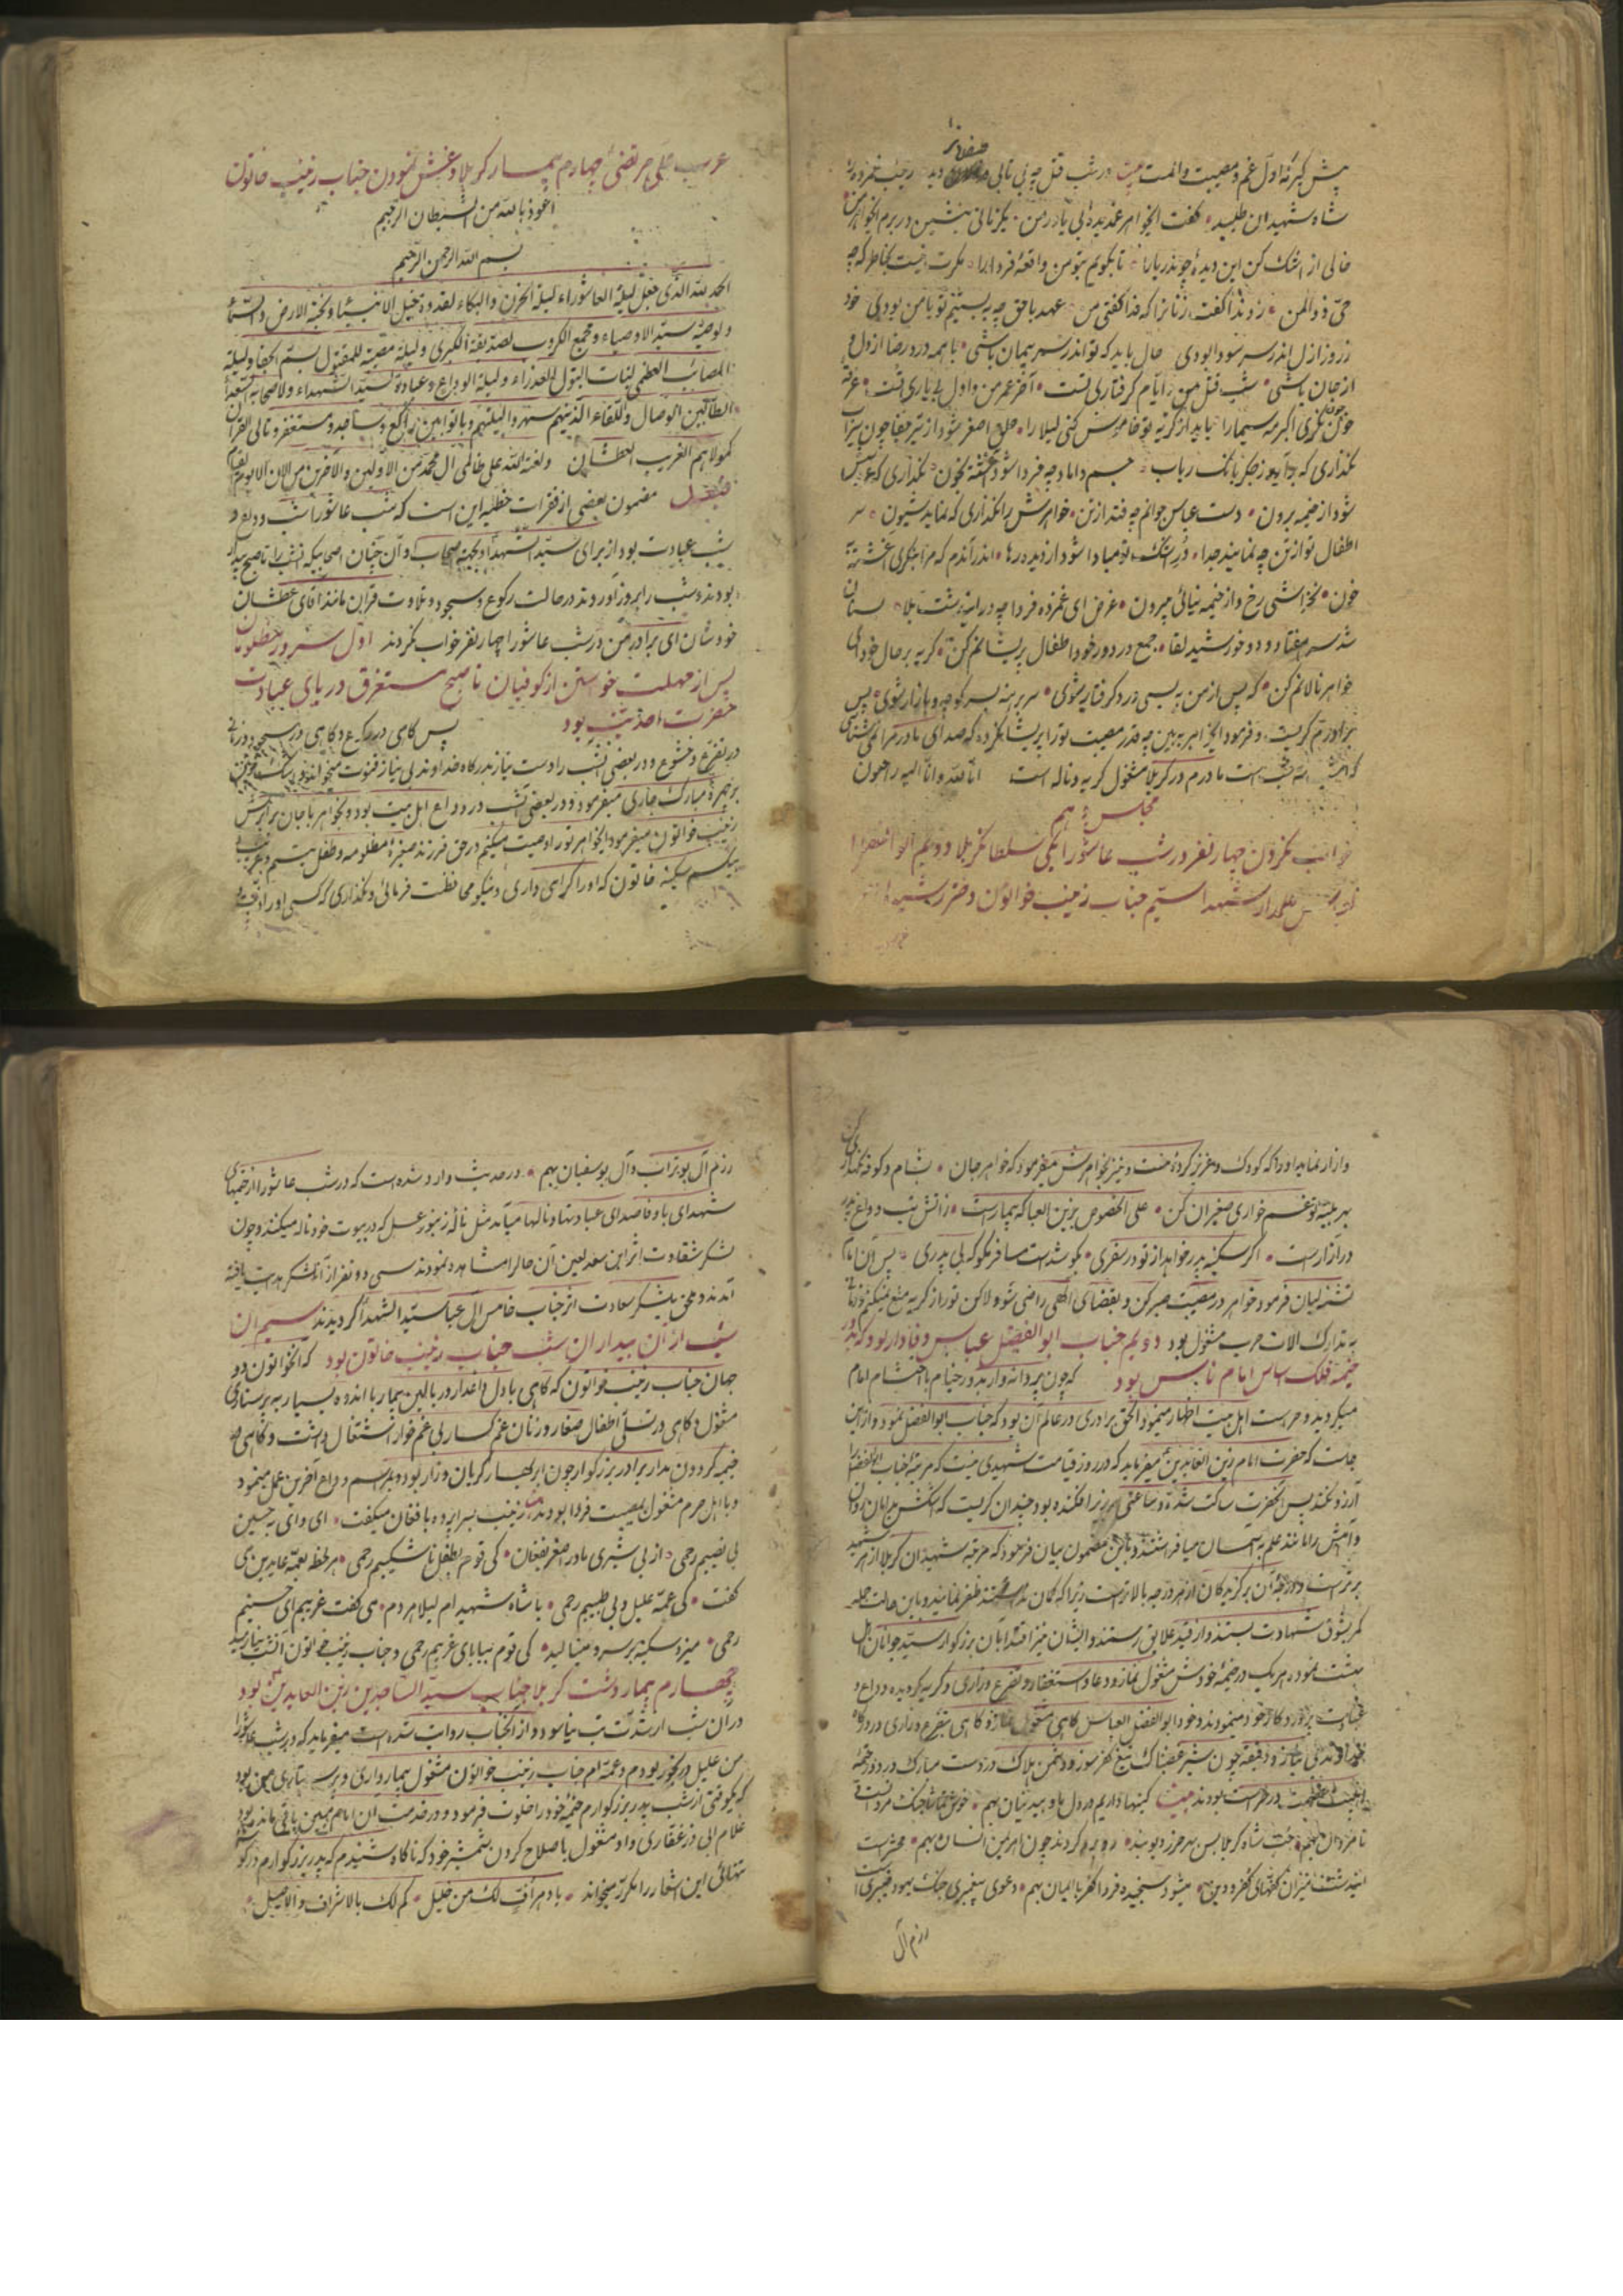 پیش کبریٔه اول غم و مصیبت و المت بیت در شب قتل چه بی تابی دید زینب غمزده
شاه شهیدان طلبید گفت ایخواهر غمدیدهٔ بی یاور من یکزمانی بنشین در برم ایخواهر من
خالی از اشک کن این دیدهٔ چو تا بگویم بتو من واقعهٔ فردا را مکرت نیست بخاطر که چه
حی ذو المن روز گفت خدا گفتی من عهد با حق چه به بستیم تو با من بودی خود
ز روز ازل اندر سر سودا بودی حال باید که تو اندر سر پیمان باشی با همه درد رضا از دل و
از جان باشی شب قتل من و ایام گرفتاری تست آخر عمر من و اول بی یاری تست غرقه
خون چون نگری اکبر مه سیما را باید از گریه تو خاموش کنی لیلا را حلق اصغر شود از تیر جفا چون
نگذاری که بانک رباب جسم داماد چه فردا شود آغشته بخون نگذاری که عروسش
شود از خیمه برون دست عباس جوانم چه فتد از تن خواهرش را نگذاری که نماید شیون سر
اطفال تو از تن چه نمایند جدا دُر اشک تو مبادا شود از دیده رها اندر آندم که مرا بنگری آغشته
خون نخراشی رخ و از خیمه نیائی بیرون غرض ای غمزده فردا چه در این دشت بلا
شد سر هفتاد و دو خورشید لقا جمع در دور خود اطفال پریشانم کن گریه بر حال خود ای
خواهر نالانم کن که پس از من به بسی درد گرفتار شوی سر برهنه بسر کوچه و بازار شوی پس
برادرم گریست و فرمود ایخواهر به بین چه قدر مصیبت تو را پریشان کرده که صدای مادر مرا نمی شناسی
شب است مادرم در کربلا مشغول گریه و ناله است انا لله و انا الیه راجعون
مجلس
خواب نکردن چهار نفر در شب عاشورا یکی سلطان کربلا دویم ابو الفضل
علمدار شهدا سیم جناب زینب خواتون دختر رشیده
عرب علی مرتضی چهارم بیمار کربلا و غش نمودن جناب زینب خاتون
اعوذ بالله من الشیطان الرجیم
بسم الله الرحمن الرحیم
الحمد لله الذی جعل لیلة العاشوراء لیلة الحزن و البکاء لقدوة خیل الانبیاء و نخبة الارض و السماء
و لوصیه سید الاوصیاء و مجمع الکروب لصدیقة الکبری و لیلة مصیبة للمقتول بسم الجفا و لیلة
المصائب العظمی لبنات البتول العذراء و لیلة الوداع و عبادة لسید الشهداء و لاصحابه السعداء
الطالبین الوصال و اللقاء الذینهم سهروا لیلتهم و باتوا بین راکع و ساجد و مستغفر و تالی القرآن
کمولاهم الغریب العطشان و لعنة الله علی ظالمی آل محمد من الاولین و الآخرین من الان الی یوم القیام
مضمون بعضی از فقرات خطبه این است که شب عاشورا شب وداع و
شب عبادت بود از برای سید الشهدا و بجهة اصحاب و آن چنان اصحابیکه انشب را تا صبح بیدار
بودند و شب را بروز آوردند در حالت رکوع و سجود و تلاوت قرآن مانند آقای عطشان
خودشان ای برادر من در شب عاشورا چهار نفر خواب نکردند اول سرور مظلومان
پس از مهلت خواستن از کوفیان تا صبح مستغرق دریای عبادت
حضرت احدیت بود پس گاهی در رکوع و گاهی در سجود و زمانی
در تضرع و خشوع و در بعضی انشب را دست نیاز بدرگاه خداوند بی نیاز قنوت میخواند و
بر چهرهٔ مبارک جاری میفرمود و در بعضی انشب در وداع اهل بیت بود و بخواهر با جان برابرش
زینب خواتون میفرمود ایخواهر تو را وصیت میکنم در حق فرزند صغیرهٔ مظلومه و طفل یتیم و غریب
بیکسم سکینه خاتون که او را گرامی داری و نیکو محافظت فرمائی و نگذاری که کسی او را اذیت
و ازار نماید او را که کودک و عزیز کردهٔ منست و نیز بخواهرش میفرمود که خواهر جان بشام و کوفه
بهر بلیه تو غم خواری صغیران کن علی الخصوص بزین العبا که بیمار است ز آتش تب و داغ پدر
در آزار است اگر سکینه پدر خواهد از تو در سفری بگو شدست مسافر مگو که بی پدری پس آن امام
تشنه لبان فرمود خواهر در مصیبت صبر کن و بقضای الهی راضی شو و لاکن تو را از گریه منع نمیکنم
به تدارک الات حرب مشغول بود دویم جناب ابو الفضل عباس وفادار بود که بدور
خیمه فلک اساس امام ناس بود که چون پروانه وار بدور خیام با احتشام امام
میگردید و حراست اهل بیت اطهار مینمود الحق برادری در عالم آن بود که جناب ابو الفضل نمود و از این
جاست که حضرت امام زین العابدین میفرماید که در روز قیامت شهیدی نیست که مرتبهٔ جناب ابو الفضل را
آرزو نکند پس آنحضرت ساکت شده و ساعتی سر بزیر افکنده بود و چندان گریست که اشکش
و آهش را مانند علم به آسمان میافراشتند و باین مضمون بیان فرمود که مرتبه شهیدان کربلا از هر شهید
برتر است و درجهٔ آن برگزیدگان از هر درجه بالاتر است زیرا که گمان نداشتند ظفر نمایند و باین حالت
کمر بشوق شهادت بستند و از قید علایق رستند و ایشان نیز اقتدا بآن بزرگوار سید جوانان اهل
بهشت نموده هر یک در خیمهٔ خودش مشغول نماز و دعا و استغفار و تضرع و زاری و گریه گردیده وداع و
پروردگار خود مینمودند و خود ابو الفضل العباس گاهی مشغول نماز و گاهی بتضرع و زاری در درگاه
خداوند بی نیاز و دقیقهٔ چون شیر غضبناک تیغ کفر سوز و دشمن هلاک در دست مبارک در دور خیمهٔ
در حراست بودند بیت کینها داریم در دل
نامردان بهم جنت شاه کربلا بس رو برو کردند چون اهرمن انسان بهم محشر است
میشود سنجیده فردا کفر با ایمان بهم دعوی پیغمبری جنگ یهود خیبری
رزم آل
رزم آل بو تراب و آل بو سفیان بهم در حدیث وارد شده است که در شب عاشورا از خیمهای
شهدای با وفا صدای عبادتها و نالها میآمد مثل نالهٔ زنبور عسل که در بیوت خود ناله میکنند و چون
لشکر شقاوت اثر ابن سعد لعین آن حال را مشاهده نمودند سی و دو نفر از آن لشکر هدایت یافته
آمدند و ملحق بلشکر سعادت اثر جناب خامس آل عبا سید الشهدا گردیدند سیم از
از آن بیداران شب جناب زینب خاتون بود که آنخواتون دو
جهان جناب زینب خواتون که گاهی با دل داغدار در بالین بیمار با اندوه بسیار به پرستاری
مشغول و گاهی در تسلی اطفال صغار و زنان غمگسار بی غمخوار اشتغال داشت و گاهی در
خیمه گردون مدار برادر بزرگوار چون ابر بهار گریان و زار بود و برسم وداع آخرین عمل مینمود
و با اهل حرم مشغول بمصیبت فردا بودند زینب بسراپرده با فغان میگفت ای وای به حسین
بی نصیبم رحمی از بی شیری مادر اصغر بفغان کی قوم بطفل ناشکیبم رحمی هر لحظه بعمه عابدین می
گفت کی عمه علیل و بی طبیبم رحمی با شاه شهید ام لیلا هر دم می گفت غریبم ای حسینم
رحمی میزد سکینه بر سر و مینالید کی قوم ببابای غریبم رحمی و جناب زینب خواتون انشب
چهارم بیمار دشت کربلا جناب سید الساجدین زین العابدین بود
در آن شب از شدت تب نیاسود و از آنجناب روایت شده است میفرماید که در شب عاشورا
من علیل و رنجور بودم و عمه ام جناب زینب خواتون مشغول بیمار داری و پرستاری من بود
که یکوقتی از شب پدر بزرگوارم خیمهٔ خود را خلوت فرمود و در خدمت آن امام مبین باقی مانده بود
غلام ابی ذر غفاری و او مشغول باصلاح کردن شمشیر خود که ناگاه شنیدم که پدر بزرگوارم در گوشه
تنهائی این اشعار را مکرر میخواند یا دهر اف لک من خلیل کم لک بالاشراق و الاصیل